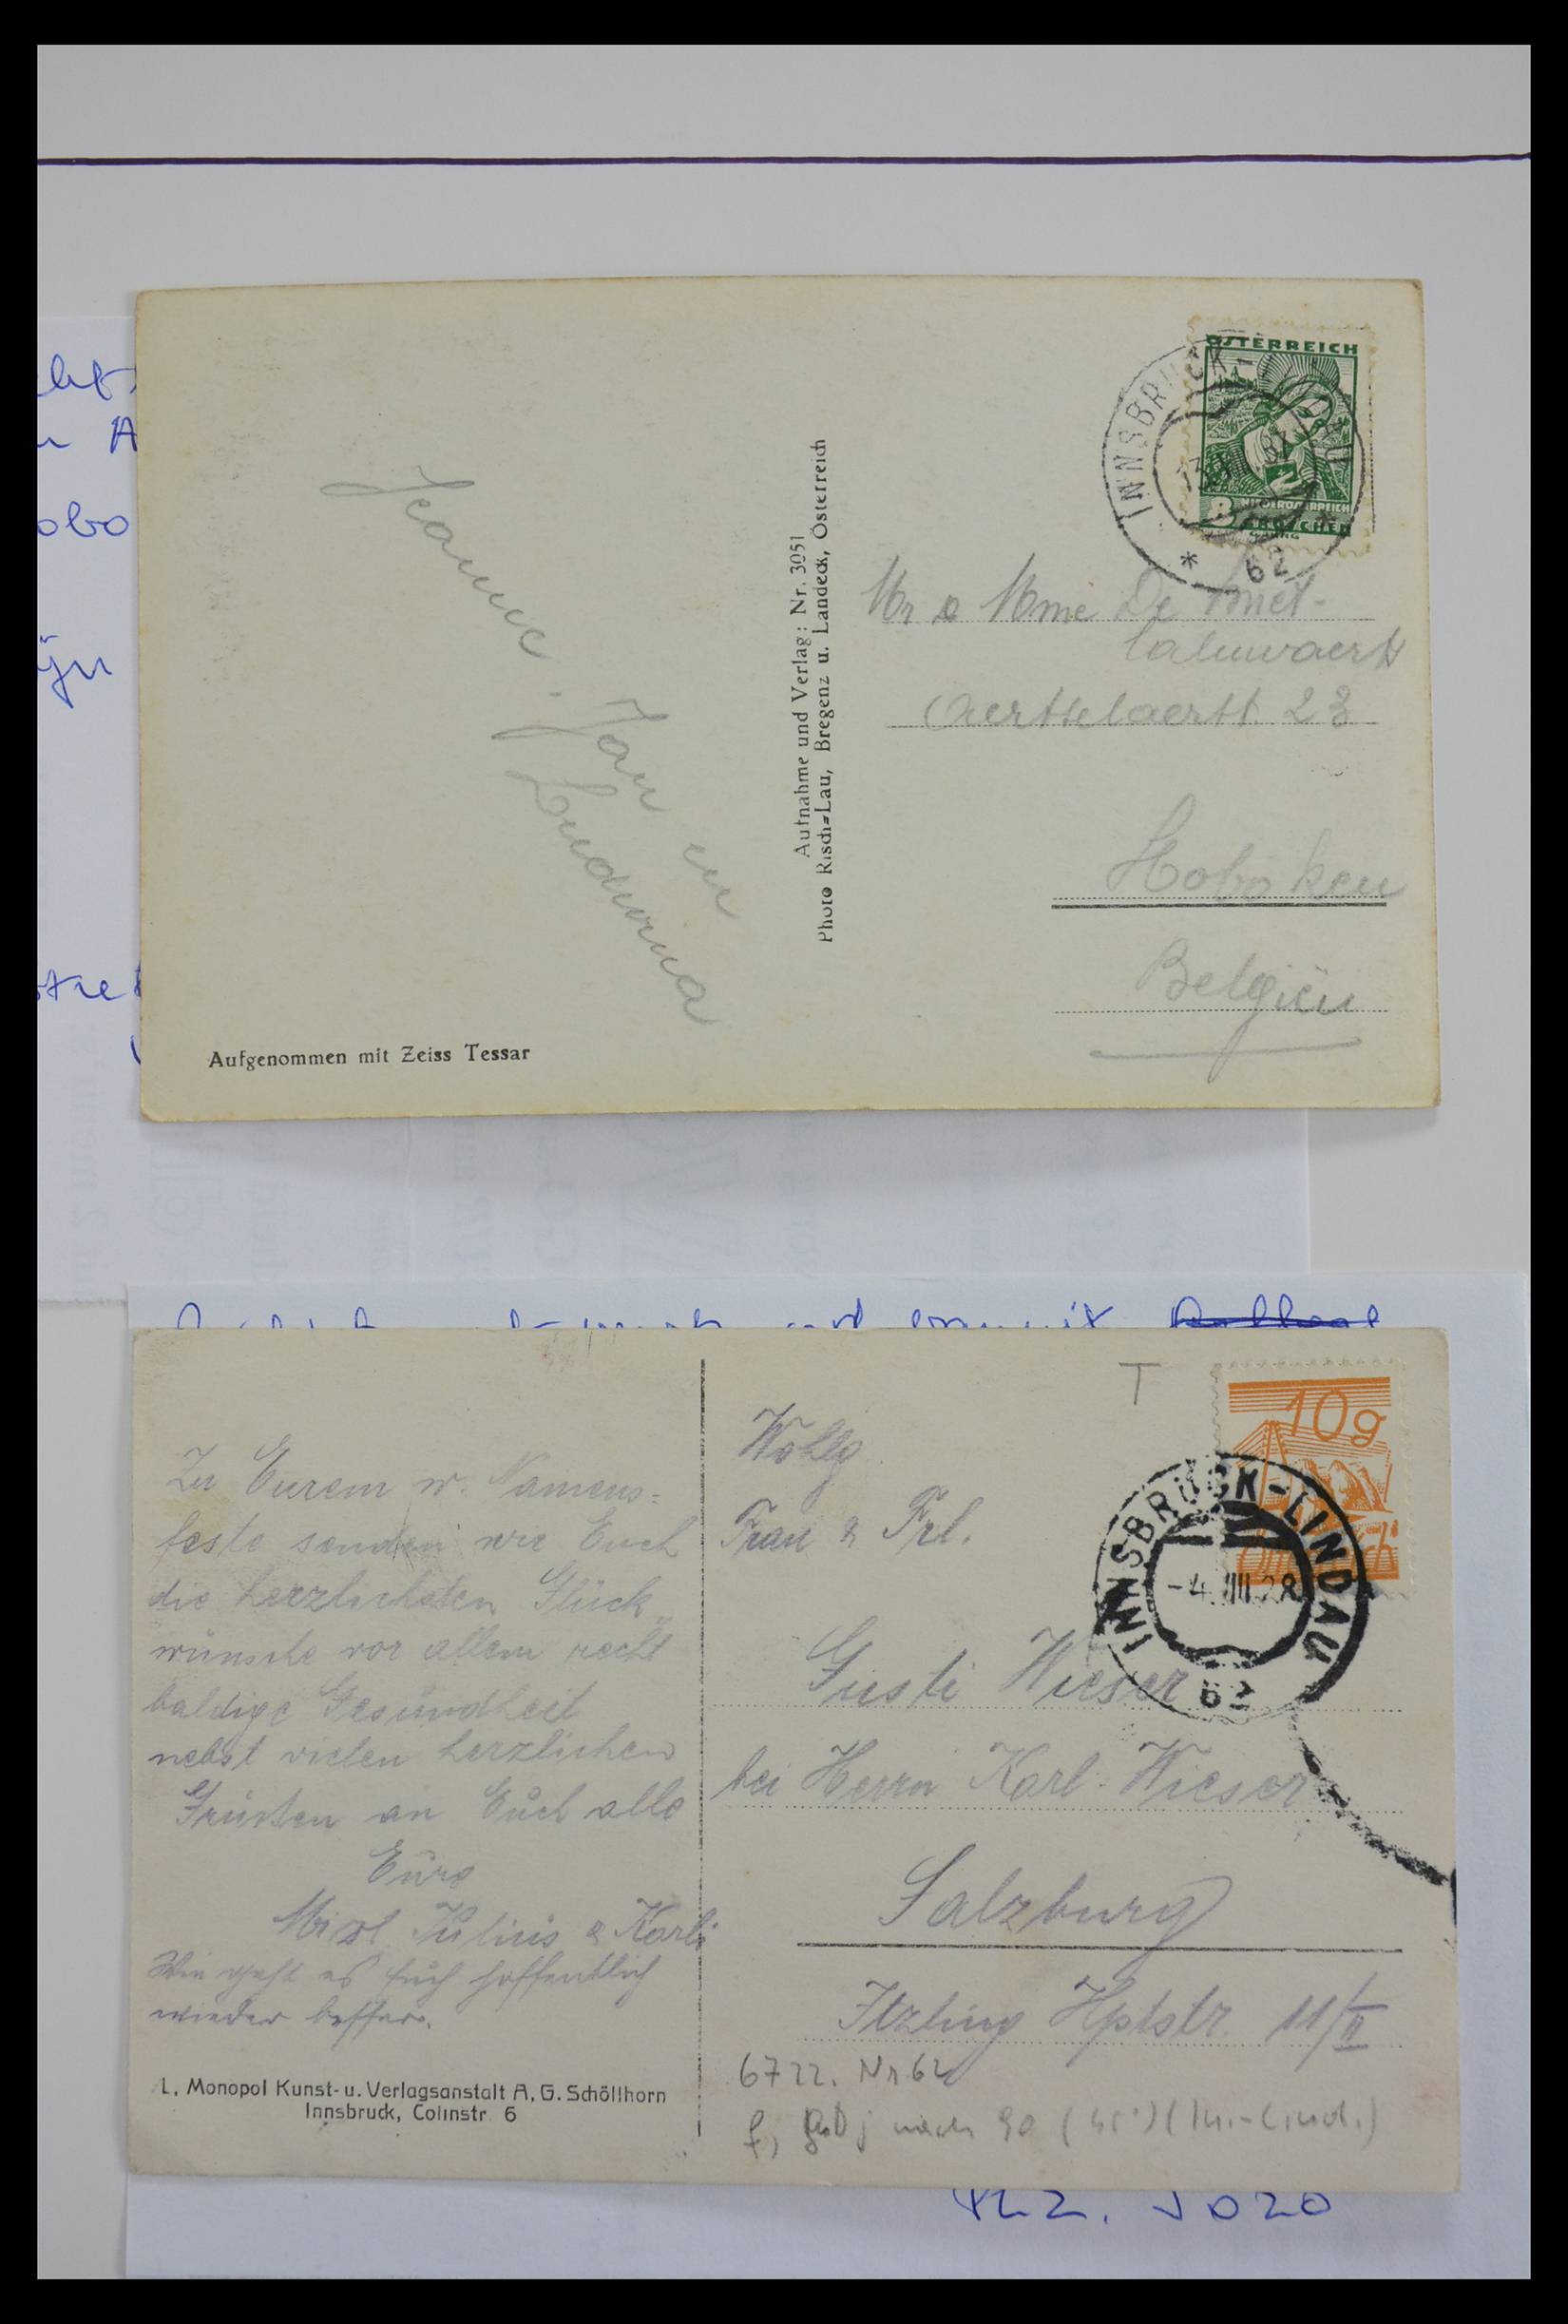 obo
ÖSTERREICH
INNSBRUCK-
NIEDERÖSTERREICH
8 GROSCHEN
* 62 *
Mr & Mme De Smet-
Aertselaerst. 23
Hoboken
Belgiën
Jeanne. Jan en
Ludovica
Aufnahme und Verlag: Nr. 3051
Photo Risch-Lau, Bregenz u. Landeck, Österreich
Aufgenommen mit Zeiss Tessar
T
10g
Österreich
INNSBRUCK-LINDAU
-4. VIII 28
62
Zu Eurem w. Namens=
feste senden wir Euch
die herzlichsten Glück
wünsche vor allem recht
baldige Gesundheit
nebst vielen herzlichen
Grüssen an Euch alle
Eure
Mizzl Julius & Karli
Wie geht es Euch hoffentlich
wieder besser.
L. Monopol Kunst- u. Verlagsanstalt A. G. Schöllhorn
Innsbruck, Colinstr. 6
Wohlg.
Frau & Frl.
Gusti Wieser
bei Herrn Karl Wieser
Salzburg
Itzling Hptstr. 11/II
6722. Nr 62
nach 90 (In.-Lind.)
PLZ. 5020